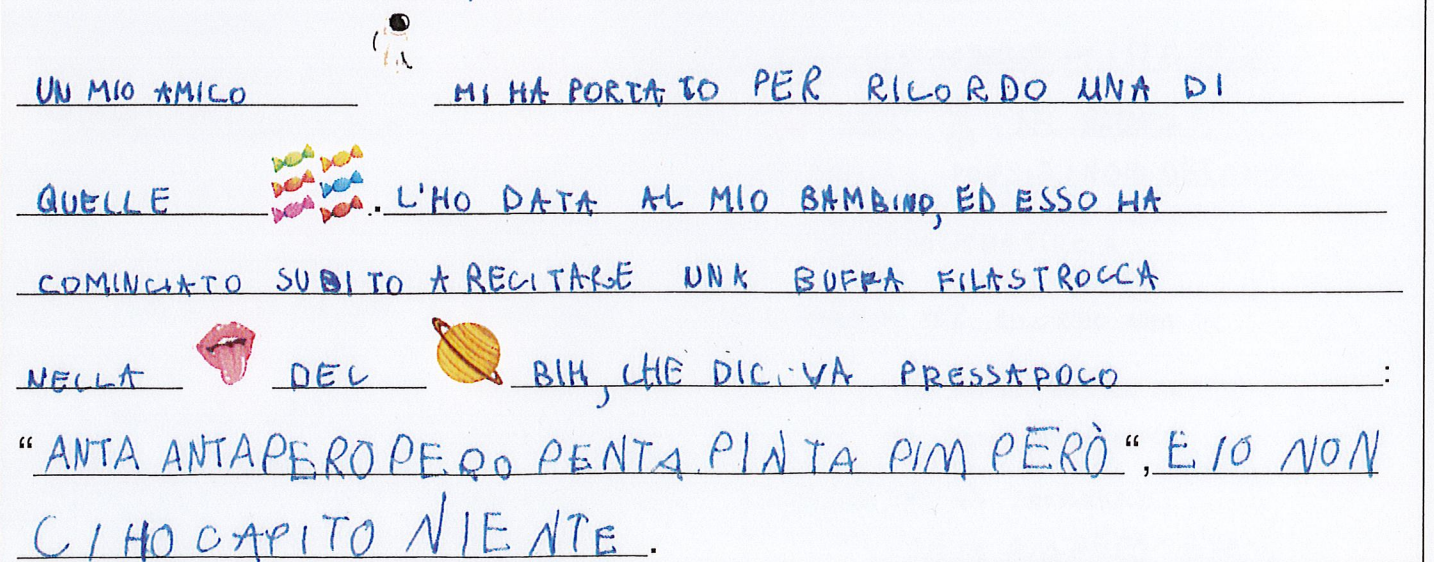 UN MIO AMICO MI HA PORTATO PER RICORDO UNA DI
QUELLE . L'HO DATA AL MIO BAMBINO, ED ESSO HA
COMINCIATO SUBITO A RECITARE UNA BUFFA FILASTROCCA
NELLA DEL BIH, CHE DICEVA PRESSAPOCO :
“ ANTA ANTAPERO PERO PENTA PINTA PIM PERÒ “, E IO NON
CI HO CAPITO NIENTE .